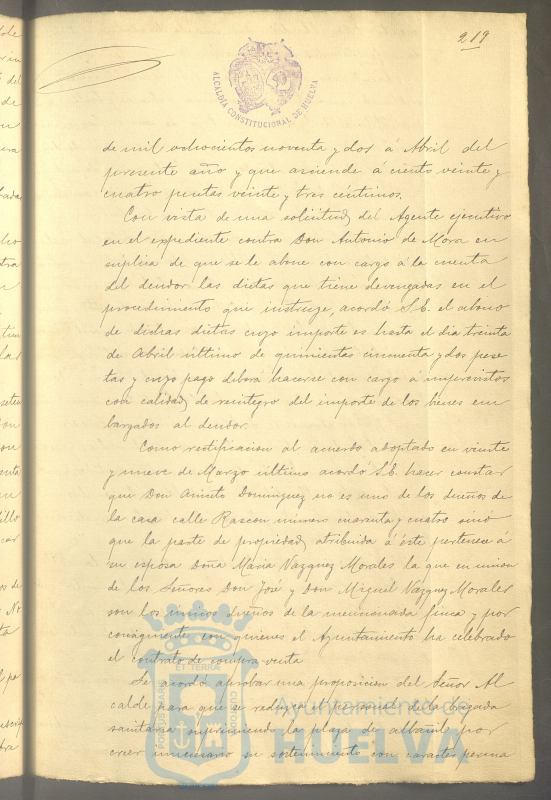 219
ALCALDÍA CONSTITUCIONAL DE HUELVA
de mil ochocientos noventa y dos á Abril del
presente año y que asciende á ciento veinte y
cuatro pesetas veinte y tres céntimos.
Con vista de una solicitud del Agente ejecutivo
en el expediente contra Don Antonio de Mora en
súplica de que se le abone con cargo á la cuenta
del deudor las dietas que tiene devengadas en el
procedimiento que instruye, acordó S.E. el abono
de dichas dietas cuyo importe es hasta el dia treinta
de Abril último de quinientas cincuenta y dos pese
tas y cuyo pago deberá hacerse con cargo á imprevistos
con calidad de reintegro del importe de los bienes em
bargados al deudor.
Como rectificacion al acuerdo adoptado en veinte
y nueve de Marzo último acordó S.E. hacer constar
que Don Aniceto Dominguez no es uno de los dueños de
la casa calle Rascon número cuarenta y cuatro sinó
que la parte de propiedad atribuida á éste pertenece á
su esposa Doña Maria Vazquez Morales la que en union
de los Señores Don José y Don Miguel Vazquez Morales
son los únicos dueños de la mencionada finca y por
consiguiente con quienes el Ayuntamiento ha celebrado
el contrato de compra-venta
Se acordó aprobar una proposicion del Señor Al
calde para que se reduzca el personal de la brigada
sanitaria suprimiendo la plaza de albañil por
creer innecesario su sostenimiento con caracter perma
PORTUS MARIS ET TERRAE CUSTODIA
Ayuntamiento de
HUELVA